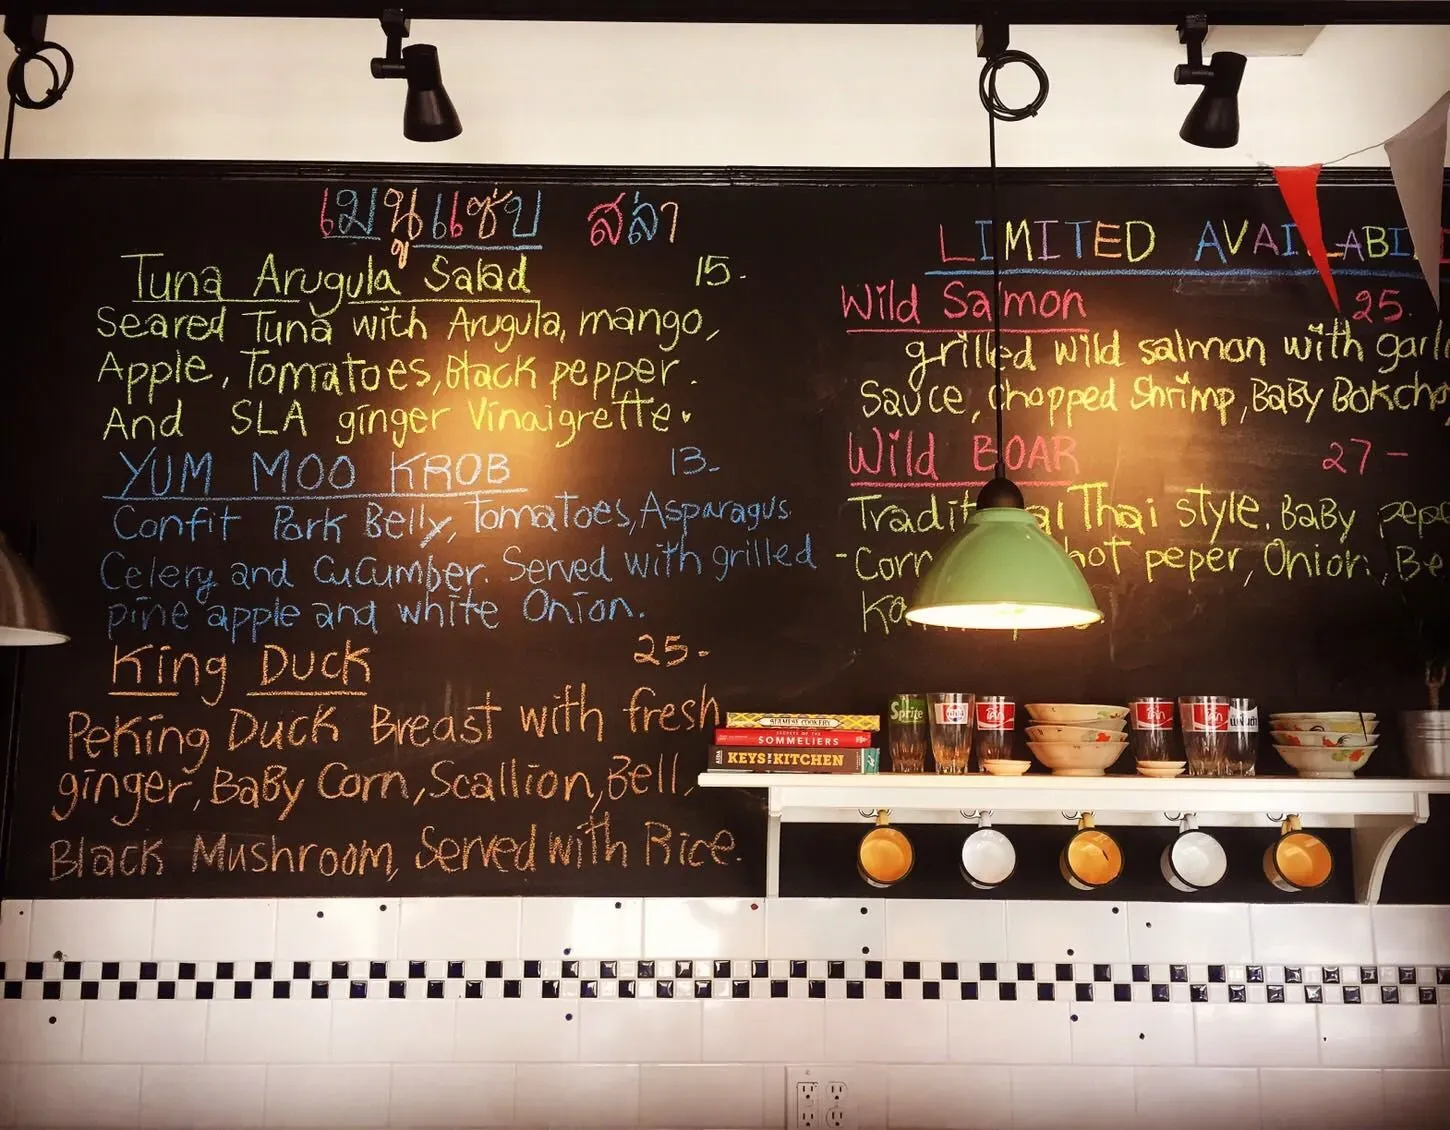 เมนูแซ่บ สล่า
Tuna Arugula Salad 15.
Seared Tuna with Arugula, mango,
Apple, Tomatoes, Black pepper.
And SLA ginger Vinaigrette.
YUM MOO KROB 13-
Confit Pork Belly, Tomatoes, Asparagus
Celery and Cucumber. Served with grilled
pine apple and white Onion.
King Duck 25-
Peking Duck Breast with fresh
ginger, Baby Corn, Scallion, Bell,
Black Mushroom, Served with Rice.
LIMITED
Wild Salmon 25.
grilled wild salmon with
Sauce, Chopped Shrimp, Baby
Wild BOAR 27-
Thai style. Baby
hot peper, Onion,
SIAMESE COOKERY
SECRETS OF THE
SOMMELIERS
KEYS TO THE KITCHEN
Sprite
โค้ก
โค้ก
โค้ก